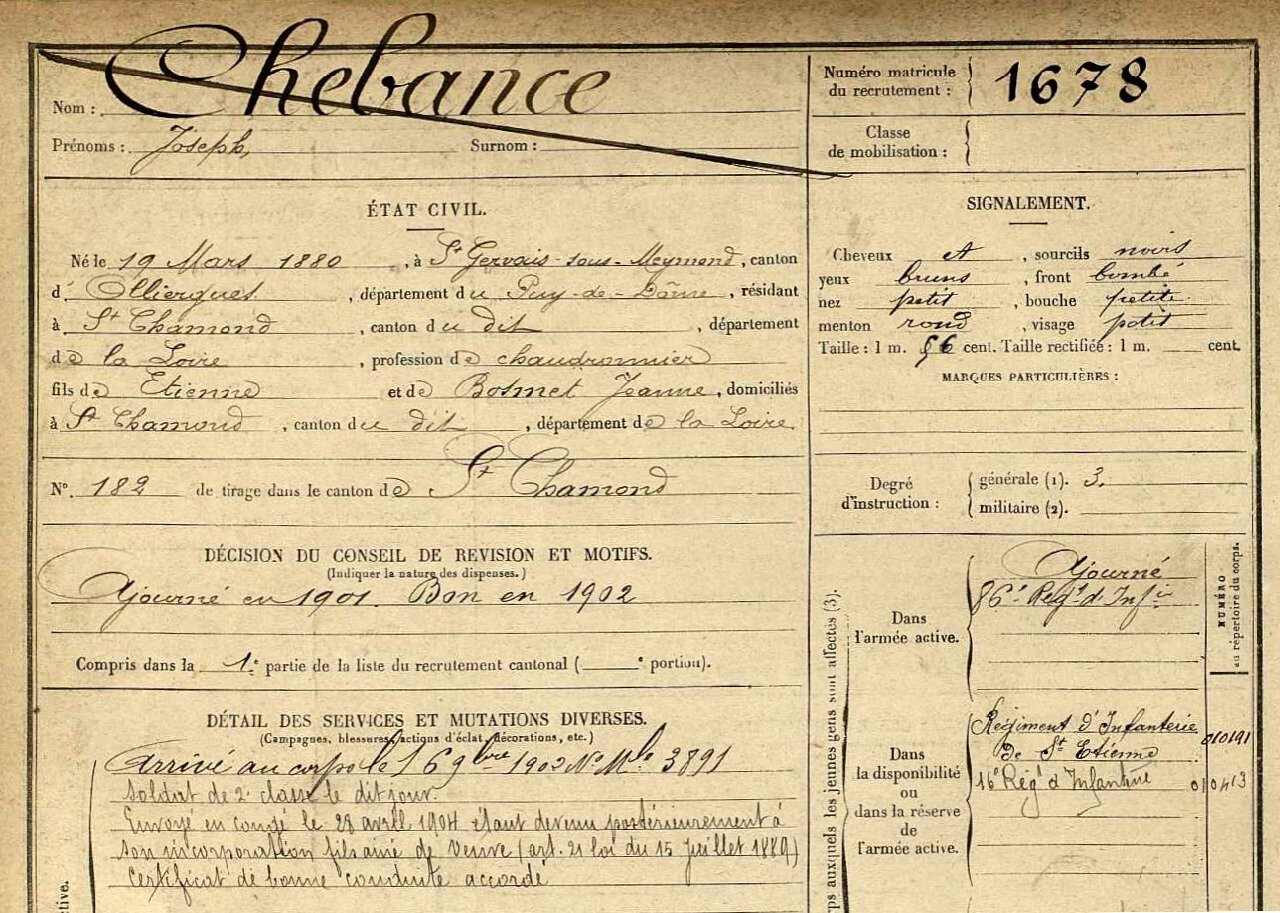 Nom : Chebance
Prénoms : Joseph, Surnom :
Numéro matricule du recrutement : 1678
Classe de mobilisation :
ÉTAT CIVIL.
Né le 19 Mars 1880, à St Gervais-sous-Meymond, canton
d' Olliergues, département du Puy-de-Dôme, résidant
à St Chamond, canton du dit, département
de la Loire, profession de chaudronnier
fils de Etienne et de Bosmet Jeanne, domiciliés
à St Chamond, canton du dit, département de la Loire.
N°. 182 de tirage dans le canton de St Chamond
SIGNALEMENT.
Cheveux et, sourcils noirs
yeux bruns, front bombé
nez petit, bouche petite
menton rond, visage petit
Taille : 1 m. 56 cent. Taille rectifiée : 1 m. cent.
MARQUES PARTICULIÈRES :
Degré d'instruction : générale (1). 3.
militaire (2).
DÉCISION DU CONSEIL DE REVISION ET MOTIFS.
(Indiquer la nature des dispenses.)
Ajourné en 1901. Bon en 1902
Compris dans la 1e partie de la liste du recrutement cantonal ( e portion).
DÉTAIL DES SERVICES ET MUTATIONS DIVERSES.
(Campagnes, blessures, actions d'éclat, décorations, etc.)
Arrivé au corps le 16 9bre 1902 No Mle 3891
Soldat de 2e classe le dit jour.
Envoyé en congé le 28 avril 1904 étant devenu postérieurement à
son incorporation fils ainé de Veuve (art. 21 loi du 15 juillet 1889)
Certificat de bonne conduite accordé
ctive.
ps auxquels les jeunes gens sont affectés (3).
NUMÉRO
au répertoire du corps.
Dans l'armée active.
Ajourné
86e Regt d'Infie
Dans la disponibilité ou dans la réserve de l'armée active.
Régiment d'Infanterie
de St Etienne
16e Regt d'Infanterie